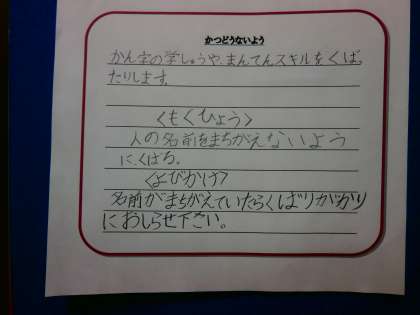 かつどうないよう
かん字の学しゅうや、まんてんスキルをくばっ
たりします。
<もくひょう>
人の名前をまちがえないよう
に、くばる。
<よびかけ>
名前がまちがえていたらくばりがかり
におしらせ下さい。